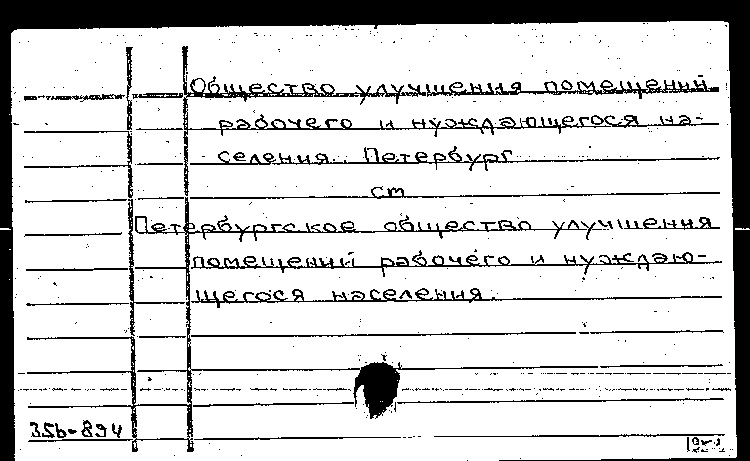 Общество улучшения помещений
рабочего и нуждающегося на-
селения. Петербург
см
Петербургское общество улучшения
помещений рабочего и нуждаю-
щегося населения.
35b-894